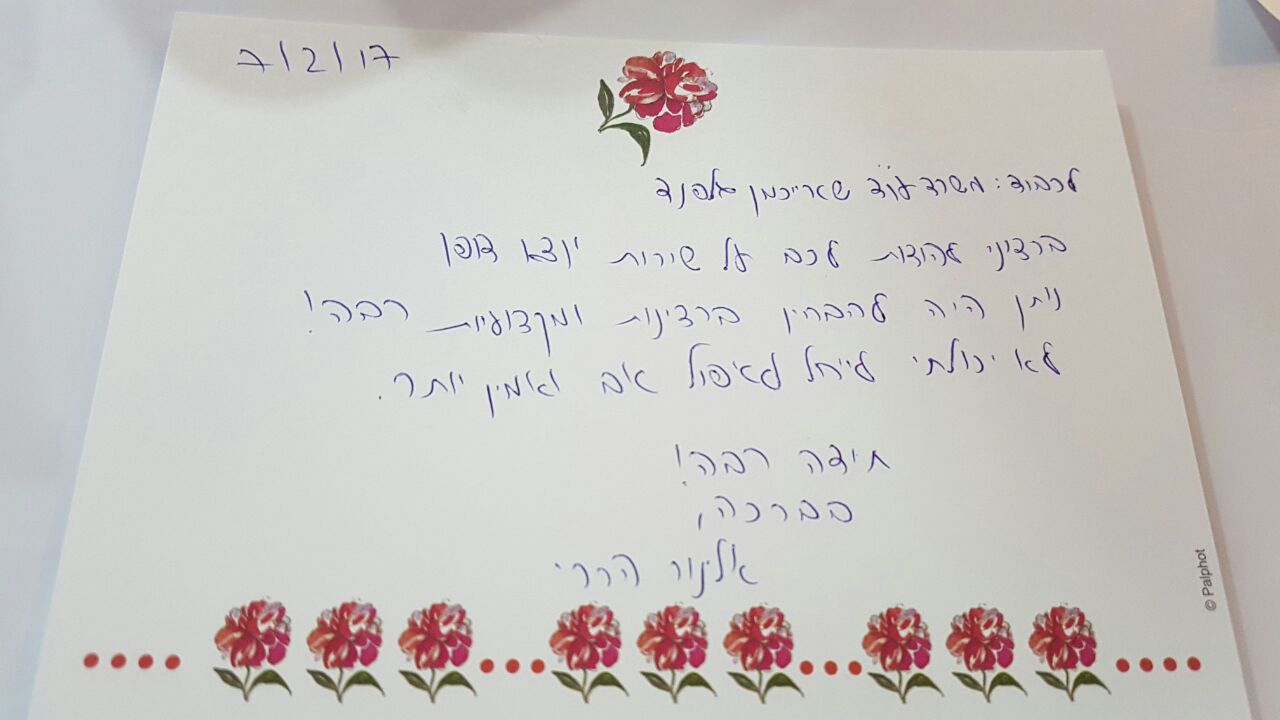 7/2/17
לכבוד: משרד עו"ד שארייכמן אלפנד
ברצוני להודות לכם על שירות יוצא דופן
ניתן היה להבחין ברצינות ומקצועיות רבה!
לא יכולתי לייחל לטיפול אמין יותר.
תודה רבה!
בברכה,
אלינור הררי
© Palphot